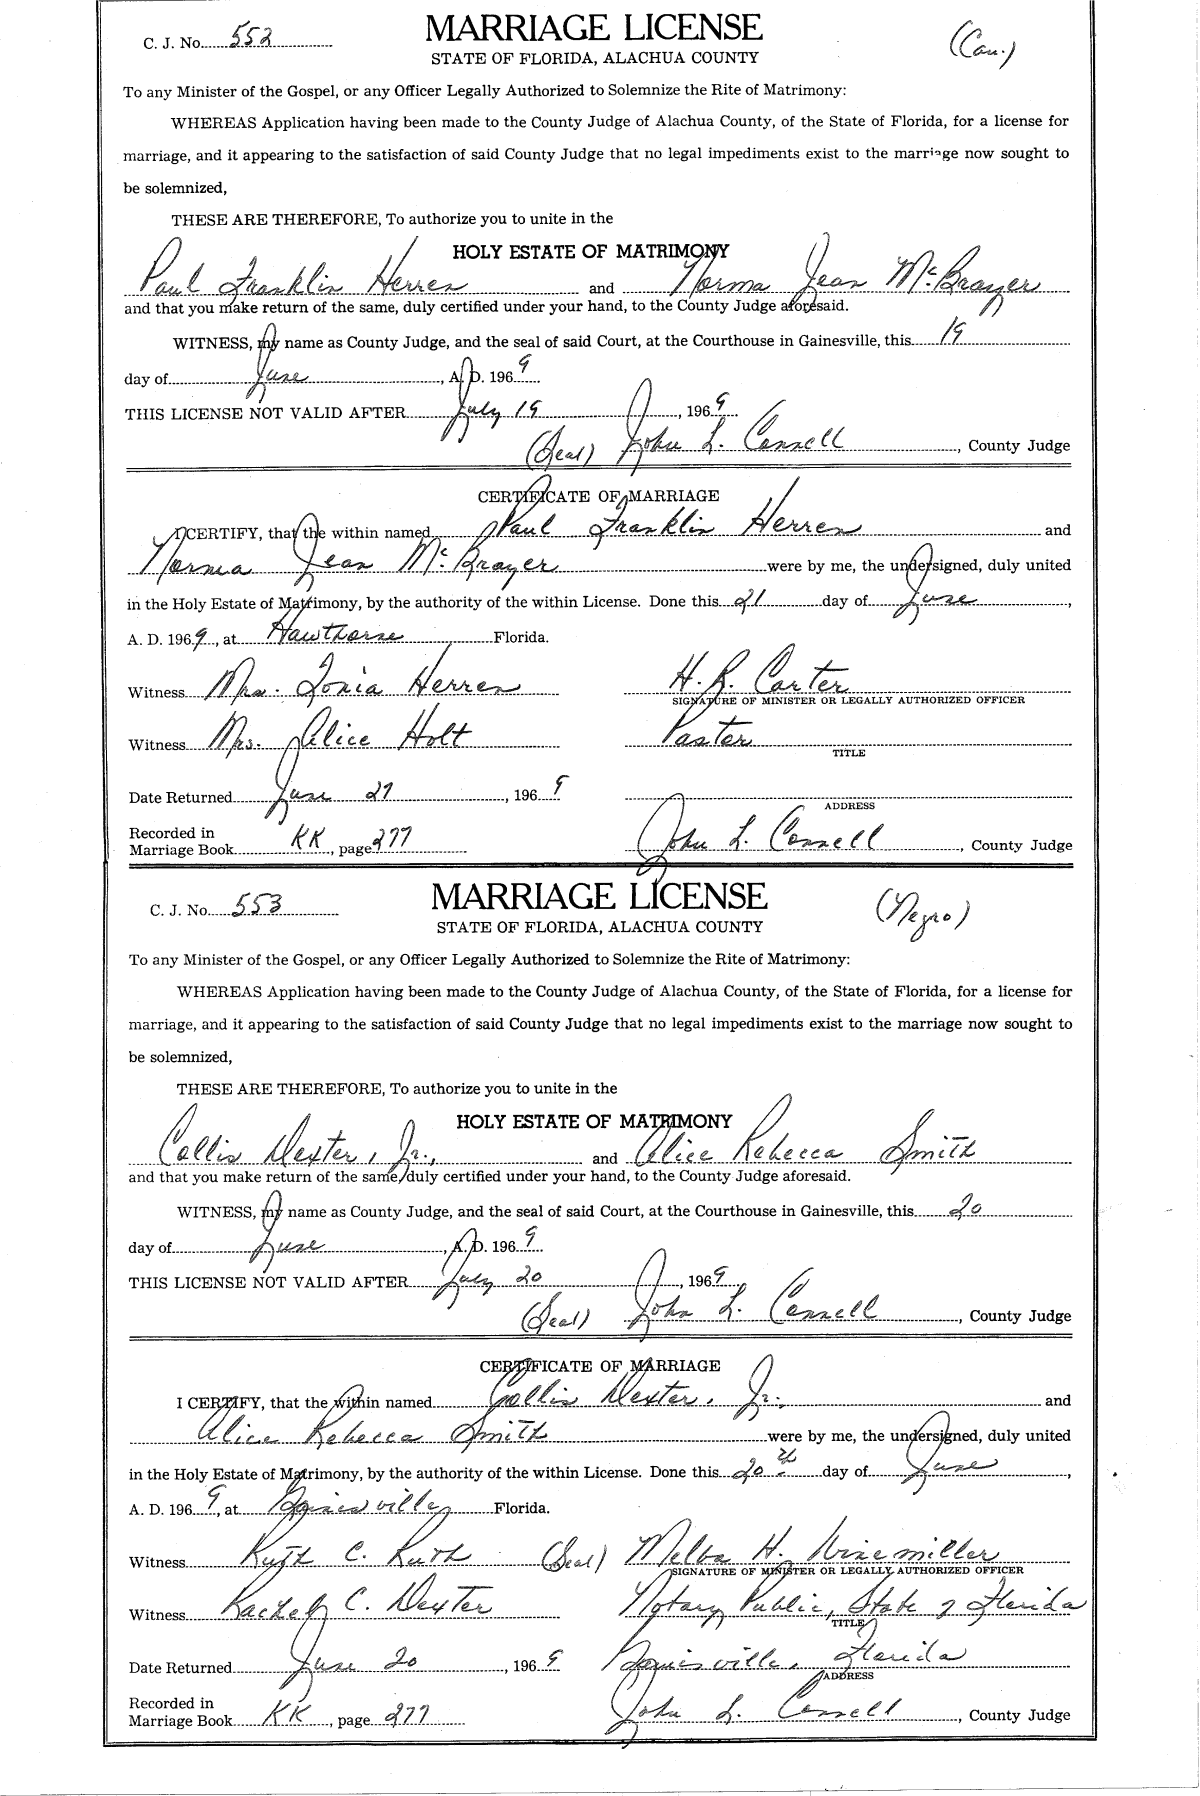 C. J. No. 552
MARRIAGE LICENSE
(Cau.)
STATE OF FLORIDA, ALACHUA COUNTY
To any Minister of the Gospel, or any Officer Legally Authorized to Solemnize the Rite of Matrimony:
WHEREAS Application having been made to the County Judge of Alachua County, of the State of Florida, for a license for
marriage, and it appearing to the satisfaction of said County Judge that no legal impediments exist to the marriage now sought to
be solemnized,
THESE ARE THEREFORE, To authorize you to unite in the
HOLY ESTATE OF MATRIMONY
Paul Franklin Herren and Norma Jean McBrayer
and that you make return of the same, duly certified under your hand, to the County Judge aforesaid.
WITNESS, my name as County Judge, and the seal of said Court, at the Courthouse in Gainesville, this 19
day of June, A. D. 1969
THIS LICENSE NOT VALID AFTER July 19, 1969
(Seal) John L. Connell, County Judge
CERTIFICATE OF MARRIAGE
I CERTIFY, that the within named Paul Franklin Herren and
Norma Jean McBrayer were by me, the undersigned, duly united
in the Holy Estate of Matrimony, by the authority of the within License. Done this 21 day of June,
A. D. 1969, at Hawthorne Florida.
Witness Mrs. Tonia Herren H. R. Carter
SIGNATURE OF MINISTER OR LEGALLY AUTHORIZED OFFICER
Witness Mrs. Alice Holt Pastor
TITLE
Date Returned June 27, 1969
ADDRESS
Recorded in
Marriage Book KK, page 277 John L. Connell, County Judge
C. J. No. 553
MARRIAGE LICENSE
(Negro)
STATE OF FLORIDA, ALACHUA COUNTY
To any Minister of the Gospel, or any Officer Legally Authorized to Solemnize the Rite of Matrimony:
WHEREAS Application having been made to the County Judge of Alachua County, of the State of Florida, for a license for
marriage, and it appearing to the satisfaction of said County Judge that no legal impediments exist to the marriage now sought to
be solemnized,
THESE ARE THEREFORE, To authorize you to unite in the
HOLY ESTATE OF MATRIMONY
Collis Dexter, Jr., and Alice Rebecca Smith
and that you make return of the same, duly certified under your hand, to the County Judge aforesaid.
WITNESS, my name as County Judge, and the seal of said Court, at the Courthouse in Gainesville, this 20
day of June, A. D. 1969
THIS LICENSE NOT VALID AFTER July 20, 1969
(Seal) John L. Connell, County Judge
CERTIFICATE OF MARRIAGE
I CERTIFY, that the within named Collis Dexter, Jr., and
Alice Rebecca Smith were by me, the undersigned, duly united
in the Holy Estate of Matrimony, by the authority of the within License. Done this 20th day of June,
A. D. 1969, at Gainesville Florida.
Witness Ruth C. Ruth (Seal) Melba H. Winemiller
SIGNATURE OF MINISTER OR LEGALLY AUTHORIZED OFFICER
Witness Rachel C. Dexter Notary Public, State of Florida
TITLE
Date Returned June 20, 1969 Gainesville, Florida
ADDRESS
Recorded in
Marriage Book KK, page 277 John L. Connell, County Judge